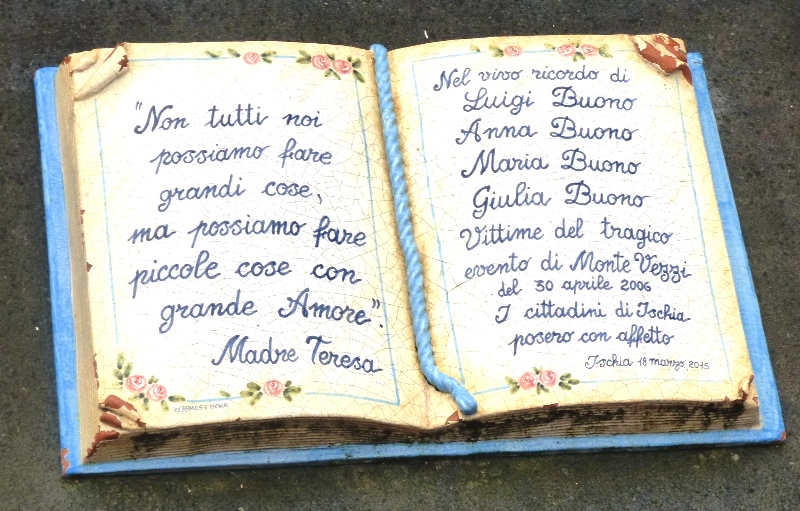 "Non tutti noi
possiamo fare
grandi cose,
ma possiamo fare
piccole cose con
grande Amore".
Madre Teresa
Nel vivo ricordo di
Luigi Buono
Anna Buono
Maria Buono
Giulia Buono
Vittime del tragico
evento di Monte Vezzi
del 30 aprile 2006
I cittadini di Ischia
posero con affetto
Ischia 18 marzo 2015